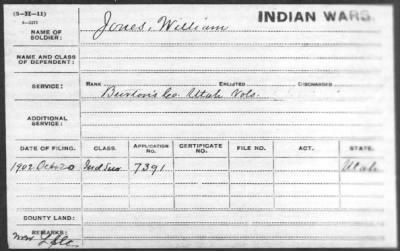 (3-II-11)
INDIAN WARS.
NAME OF SOLDIER: Jones, William
NAME AND CLASS OF DEPENDENT:
RANK ENLISTED DISCHARGED
SERVICE: Burton's Co. Utah Vols.
ADDITIONAL SERVICE:
DATE OF FILING. CLASS. APPLICATION NO. CERTIFICATE NO. FILE NO. ACT. STATE.
1902 Oct 20 Ind Surv 7391 Utah
COUNTY LAND:
REMARKS: